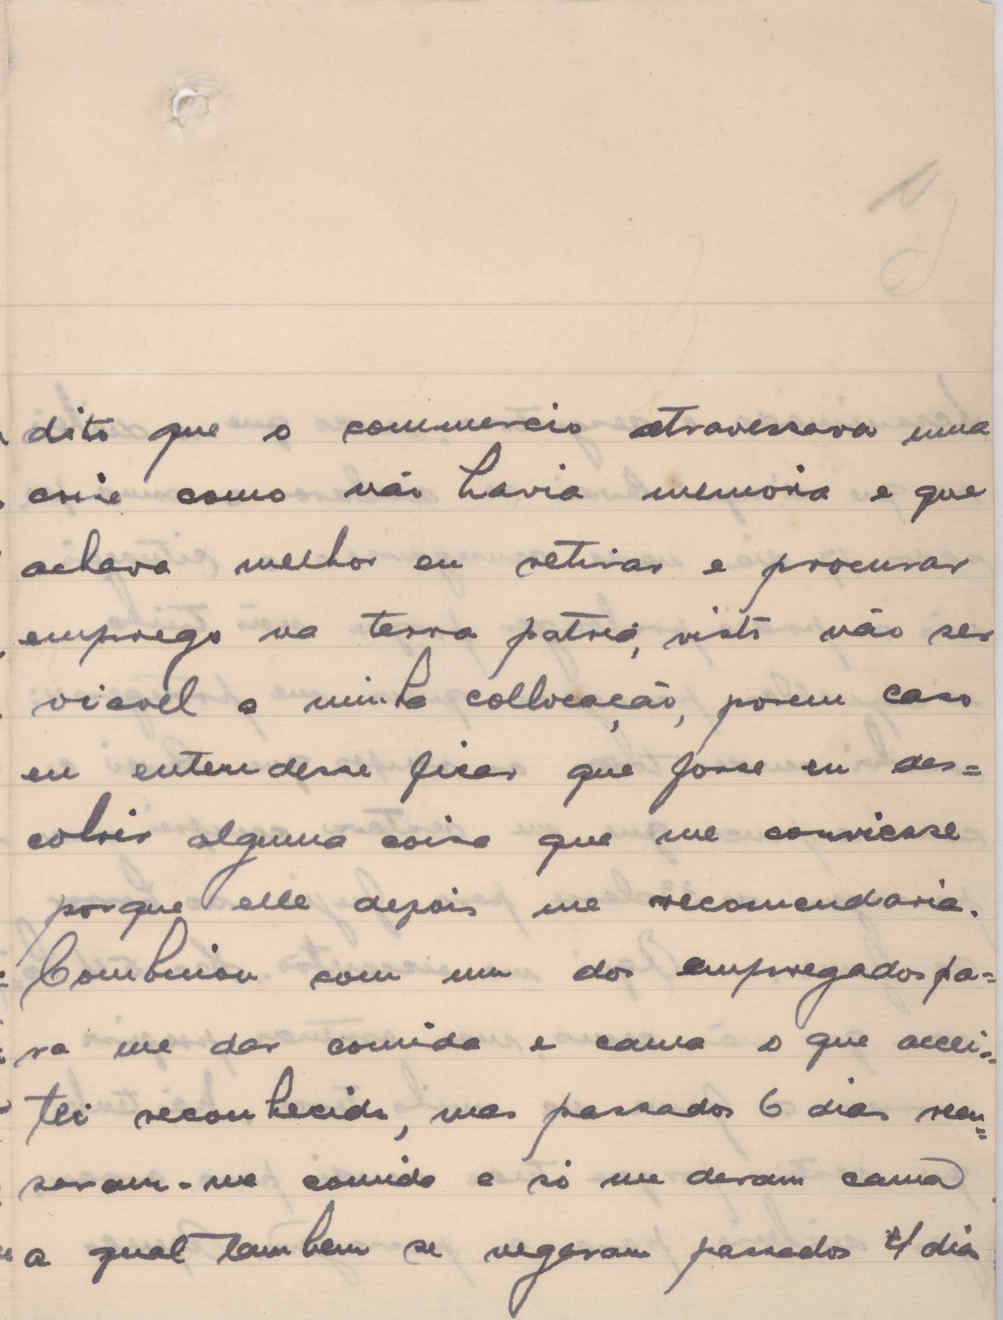 dito que o commercio atravessava uma
crise como não havia memoria e que
achava melhor eu retirar e procurar
emprego na terra patria, visto não ser
viavel a minha collocação, porem caso
eu entendesse ficar que fosse eu des=
cobrir alguma coisa que me conviesse
porque elle depois me recomendaria.
Combinou com um dos empregados pa=
ra me dar comida e cama o que accei=
tei reconhecido, mas passados 6 dias recu=
saram-me comida e só me deram cama
a qual tambem se negaram passados 4 dia